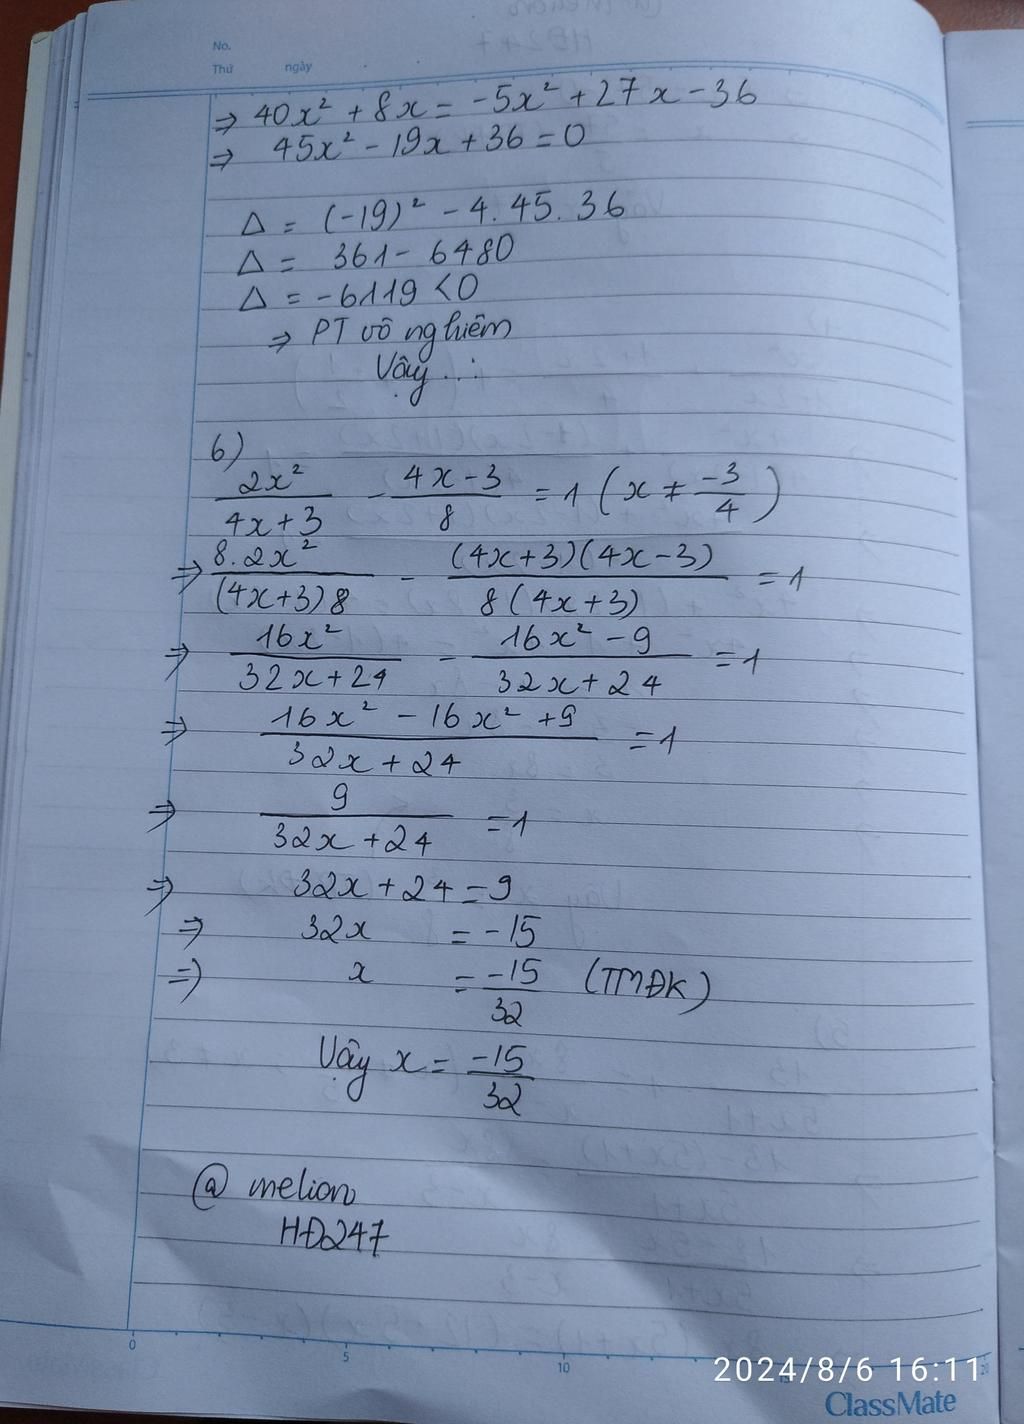 No.
Thứ ngày
⇒ 40x² + 8x = -5x² + 27x - 36
⇒ 45x² - 19x + 36 = 0
Δ = (-19)² - 4.45.36
Δ = 361 - 6480
Δ = -6119 < 0
⇒ PT vô nghiêm
Vậy ...
6)
2x²/(4x+3) - (4x-3)/8 = 1 (x ≠ -3/4)
⇒ 8.2x²/((4x+3)8) - (4x+3)(4x-3)/(8(4x+3)) = 1
⇒ 16x²/(32x+24) - (16x²-9)/(32x+24) = 1
⇒ (16x² - 16x² + 9)/(32x+24) = 1
⇒ 9/(32x+24) = 1
⇒ 32x + 24 = 9
⇒ 32x = -15
⇒ x = -15/32 (TMĐK)
Vậy x = -15/32
@ melion
HĐ247
0 5 10 20
2024/8/6 16:11
ClassMate